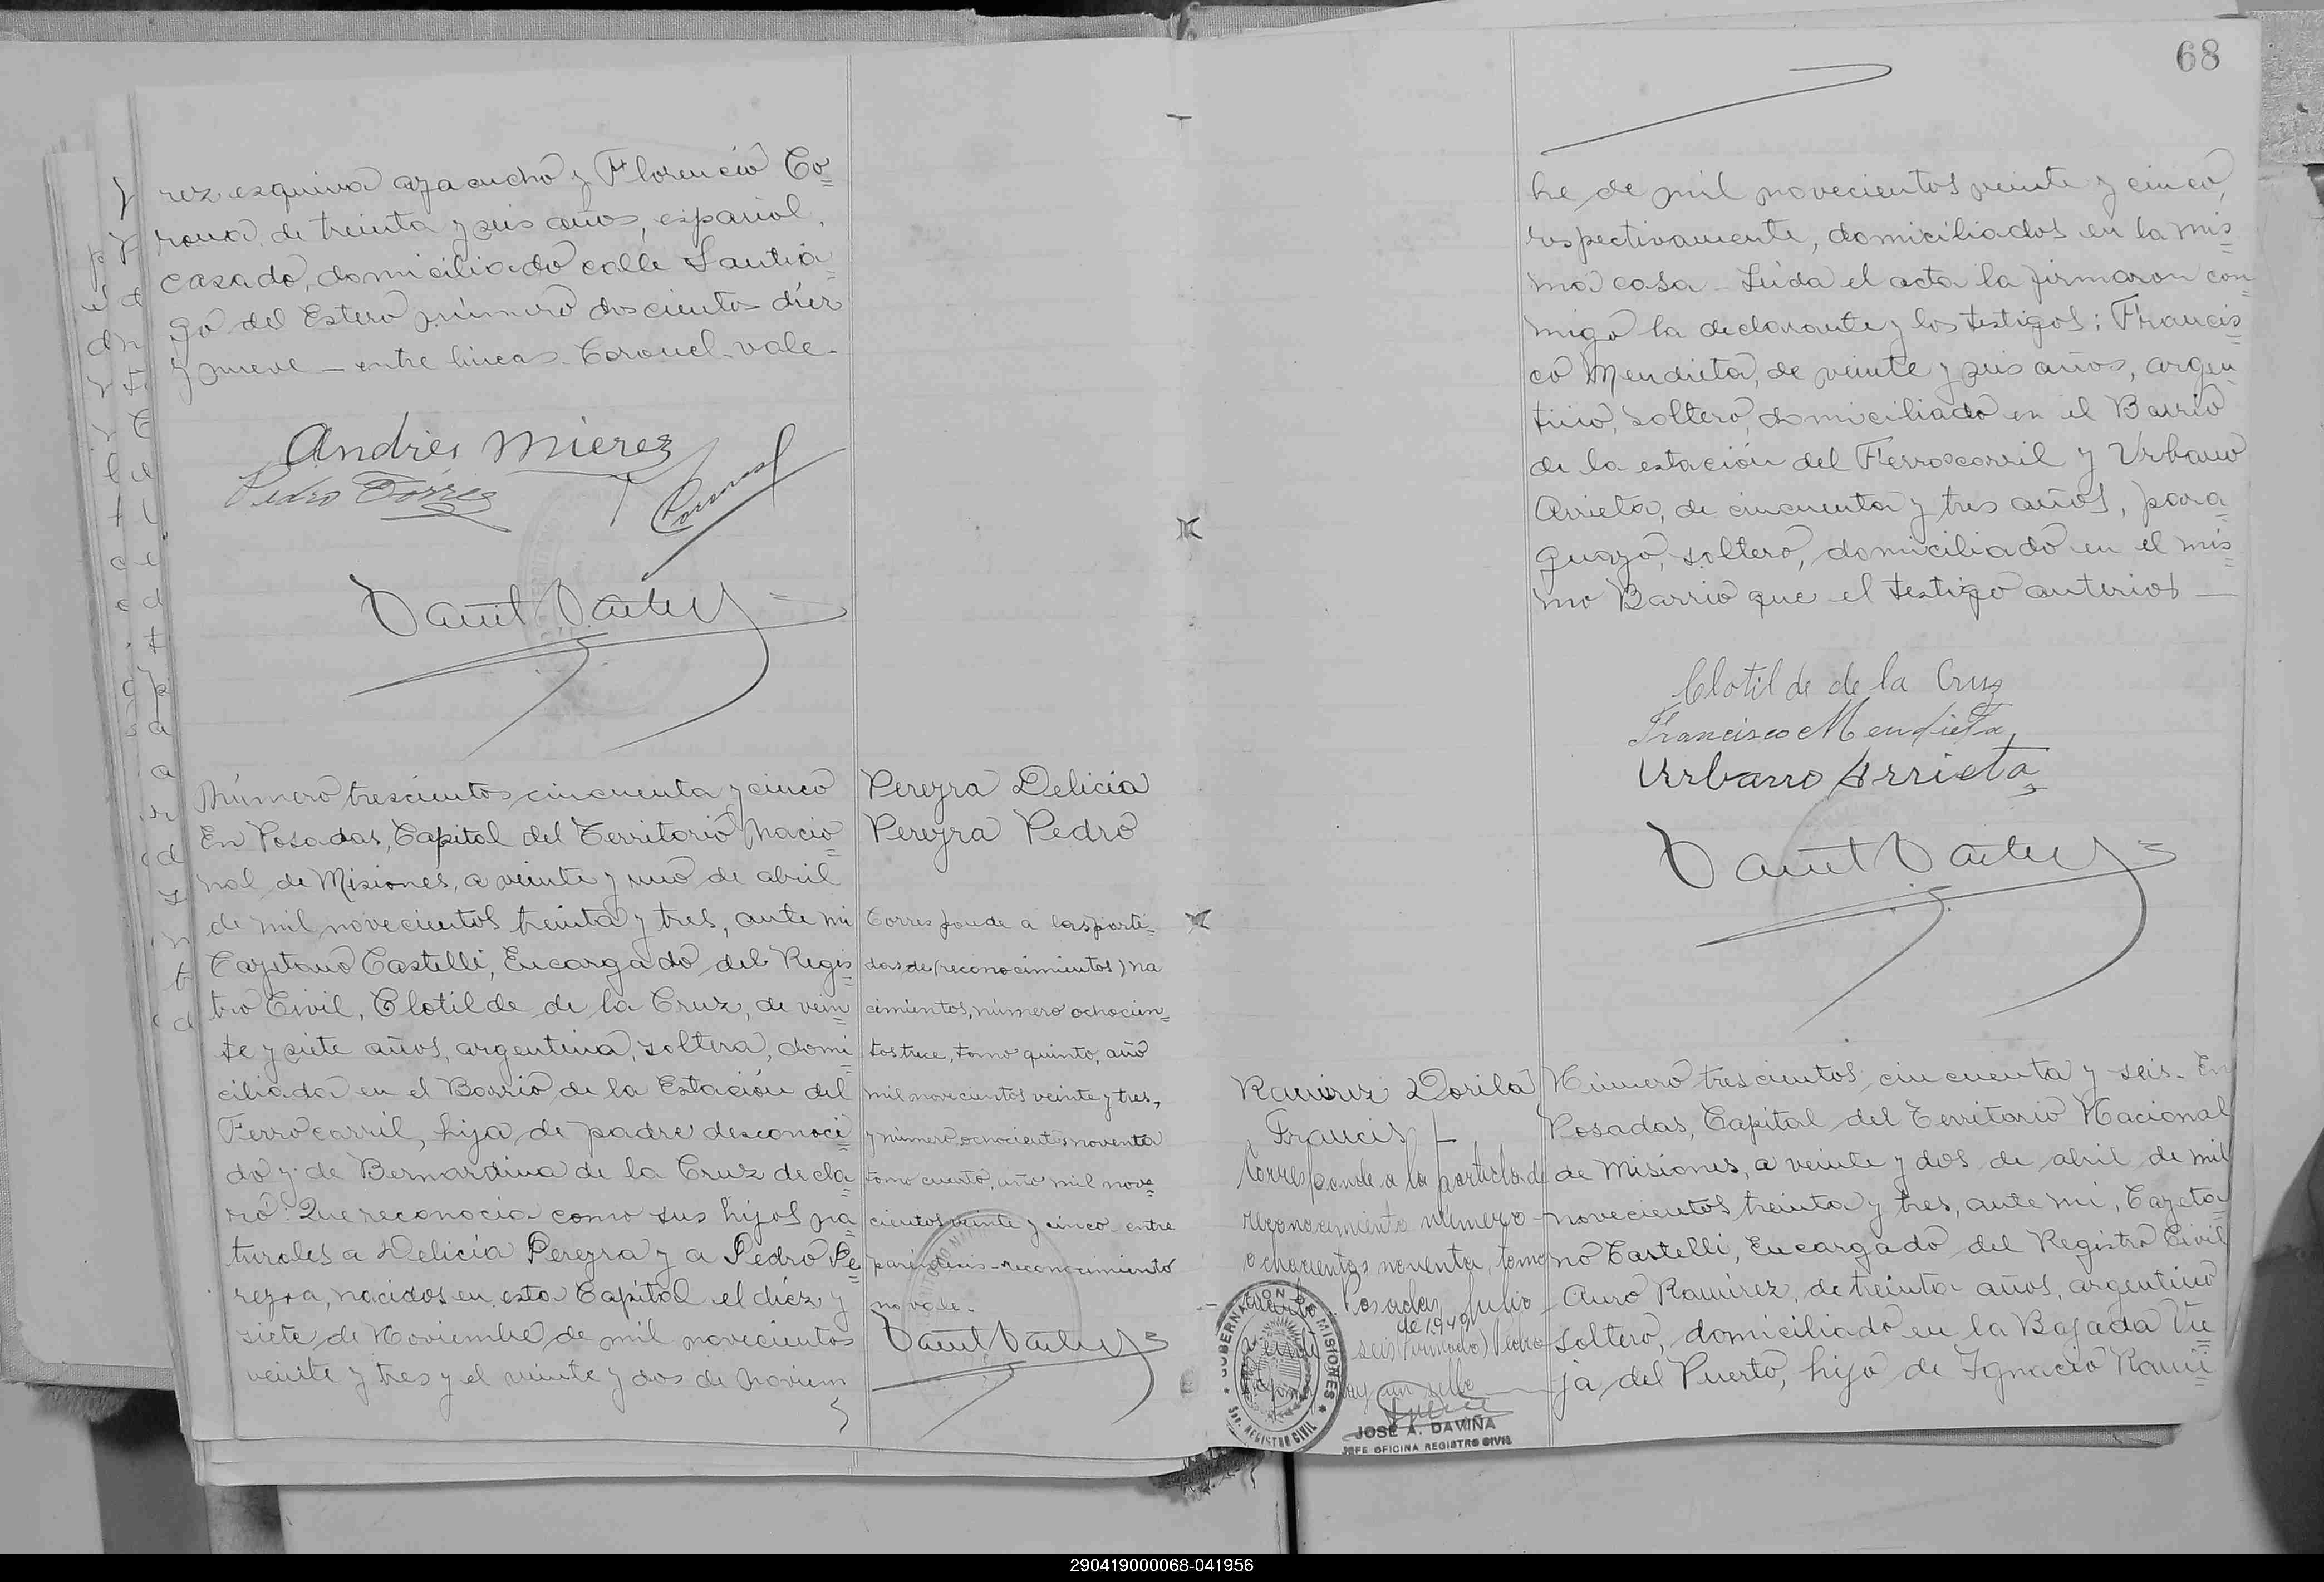 rez esquina ayacucho y Florencio Co=
rona, de treinta y seis años, español,
casado, domiciliado calle Santia=
go del Estero número doscientos diez
y nueve — entre lineas - Coronel - vale -
Andrés Mierez
Pedro Torres
Coronel
Número trescientos cincuenta y cinco
En Posadas, Capital del Territorio Nacio=
nal de Misiones, a veinte y uno de abril
de mil novecientos treinta y tres, ante mi
Cayetano Castelli, Encargado del Regis=
tro Civil, Clotilde de la Cruz, de vein=
te y siete años, argentina, soltera, domi=
ciliada en el Barrio de la Estación del
Ferrocarril, hija de padre desconoci=
do y de Bernardina de la Cruz decla=
ró: Que reconocia como sus hijos na
turales a Delicia Pereyra y a Pedro Pe=
reyra, nacidos en esta Capital el diéz y
siete de Noviembre de mil novecientos
veinte y tres y el veinte y dos de noviem
Pereyra Delicia
Pereyra Pedro
Corresponde a las parti=
das de (reconocimientos) na
cimientos, número ochocien=
tos trece, tomo quinto, año
mil novecientos veinte y tres,
y número ochocientos noventa
tomo cuarto, año mil nove=
cientos veinte y cinco - entre
paréntesis - reconocimiento
no vale -
68
bre de mil novecientos veinte y cinco,
respectivamente, domiciliados en la mis=
ma casa - Leida el acta la firmaron con=
migo la declarante y los testigos: Francis=
co Mendieta, de veinte y seis años, argen=
tino, soltero, domiciliado en el Barrio
de la estación del Ferrocarril y Urbano
Arrieta, de cincuenta y tres años, para=
guayo, soltero, domiciliado en el mis=
mo Barrio que el testigo anterior —
Clotilde de la Cruz
Francisco Mendieta
Urbano Arrieta
Ramirez Dorila
Francis
Corresponde a la partida de
reconocimiento número
ochocientos noventa, tomo
cuarto. Posadas, Julio
de 1949
seis (firmado) Pedro
hay un sello
GOBERNACION DE MISIONES
REGISTRO CIVIL
JOSÉ A. DAVIÑA
JEFE OFICINA REGISTRO CIVIL
Número trescientos cincuenta y seis - En
Posadas, Capital del Territorio Nacional
de Misiones, a veinte y dos de abril de mil
novecientos treinta y tres, ante mi, Cayeta
no Castelli, Encargado del Registro Civil
Auro Ramirez, de treinta años, argentino
soltero, domiciliado en la Bajada Vie=
ja del Puerto, hijo de Ignacio Rami=
290419000068-041956